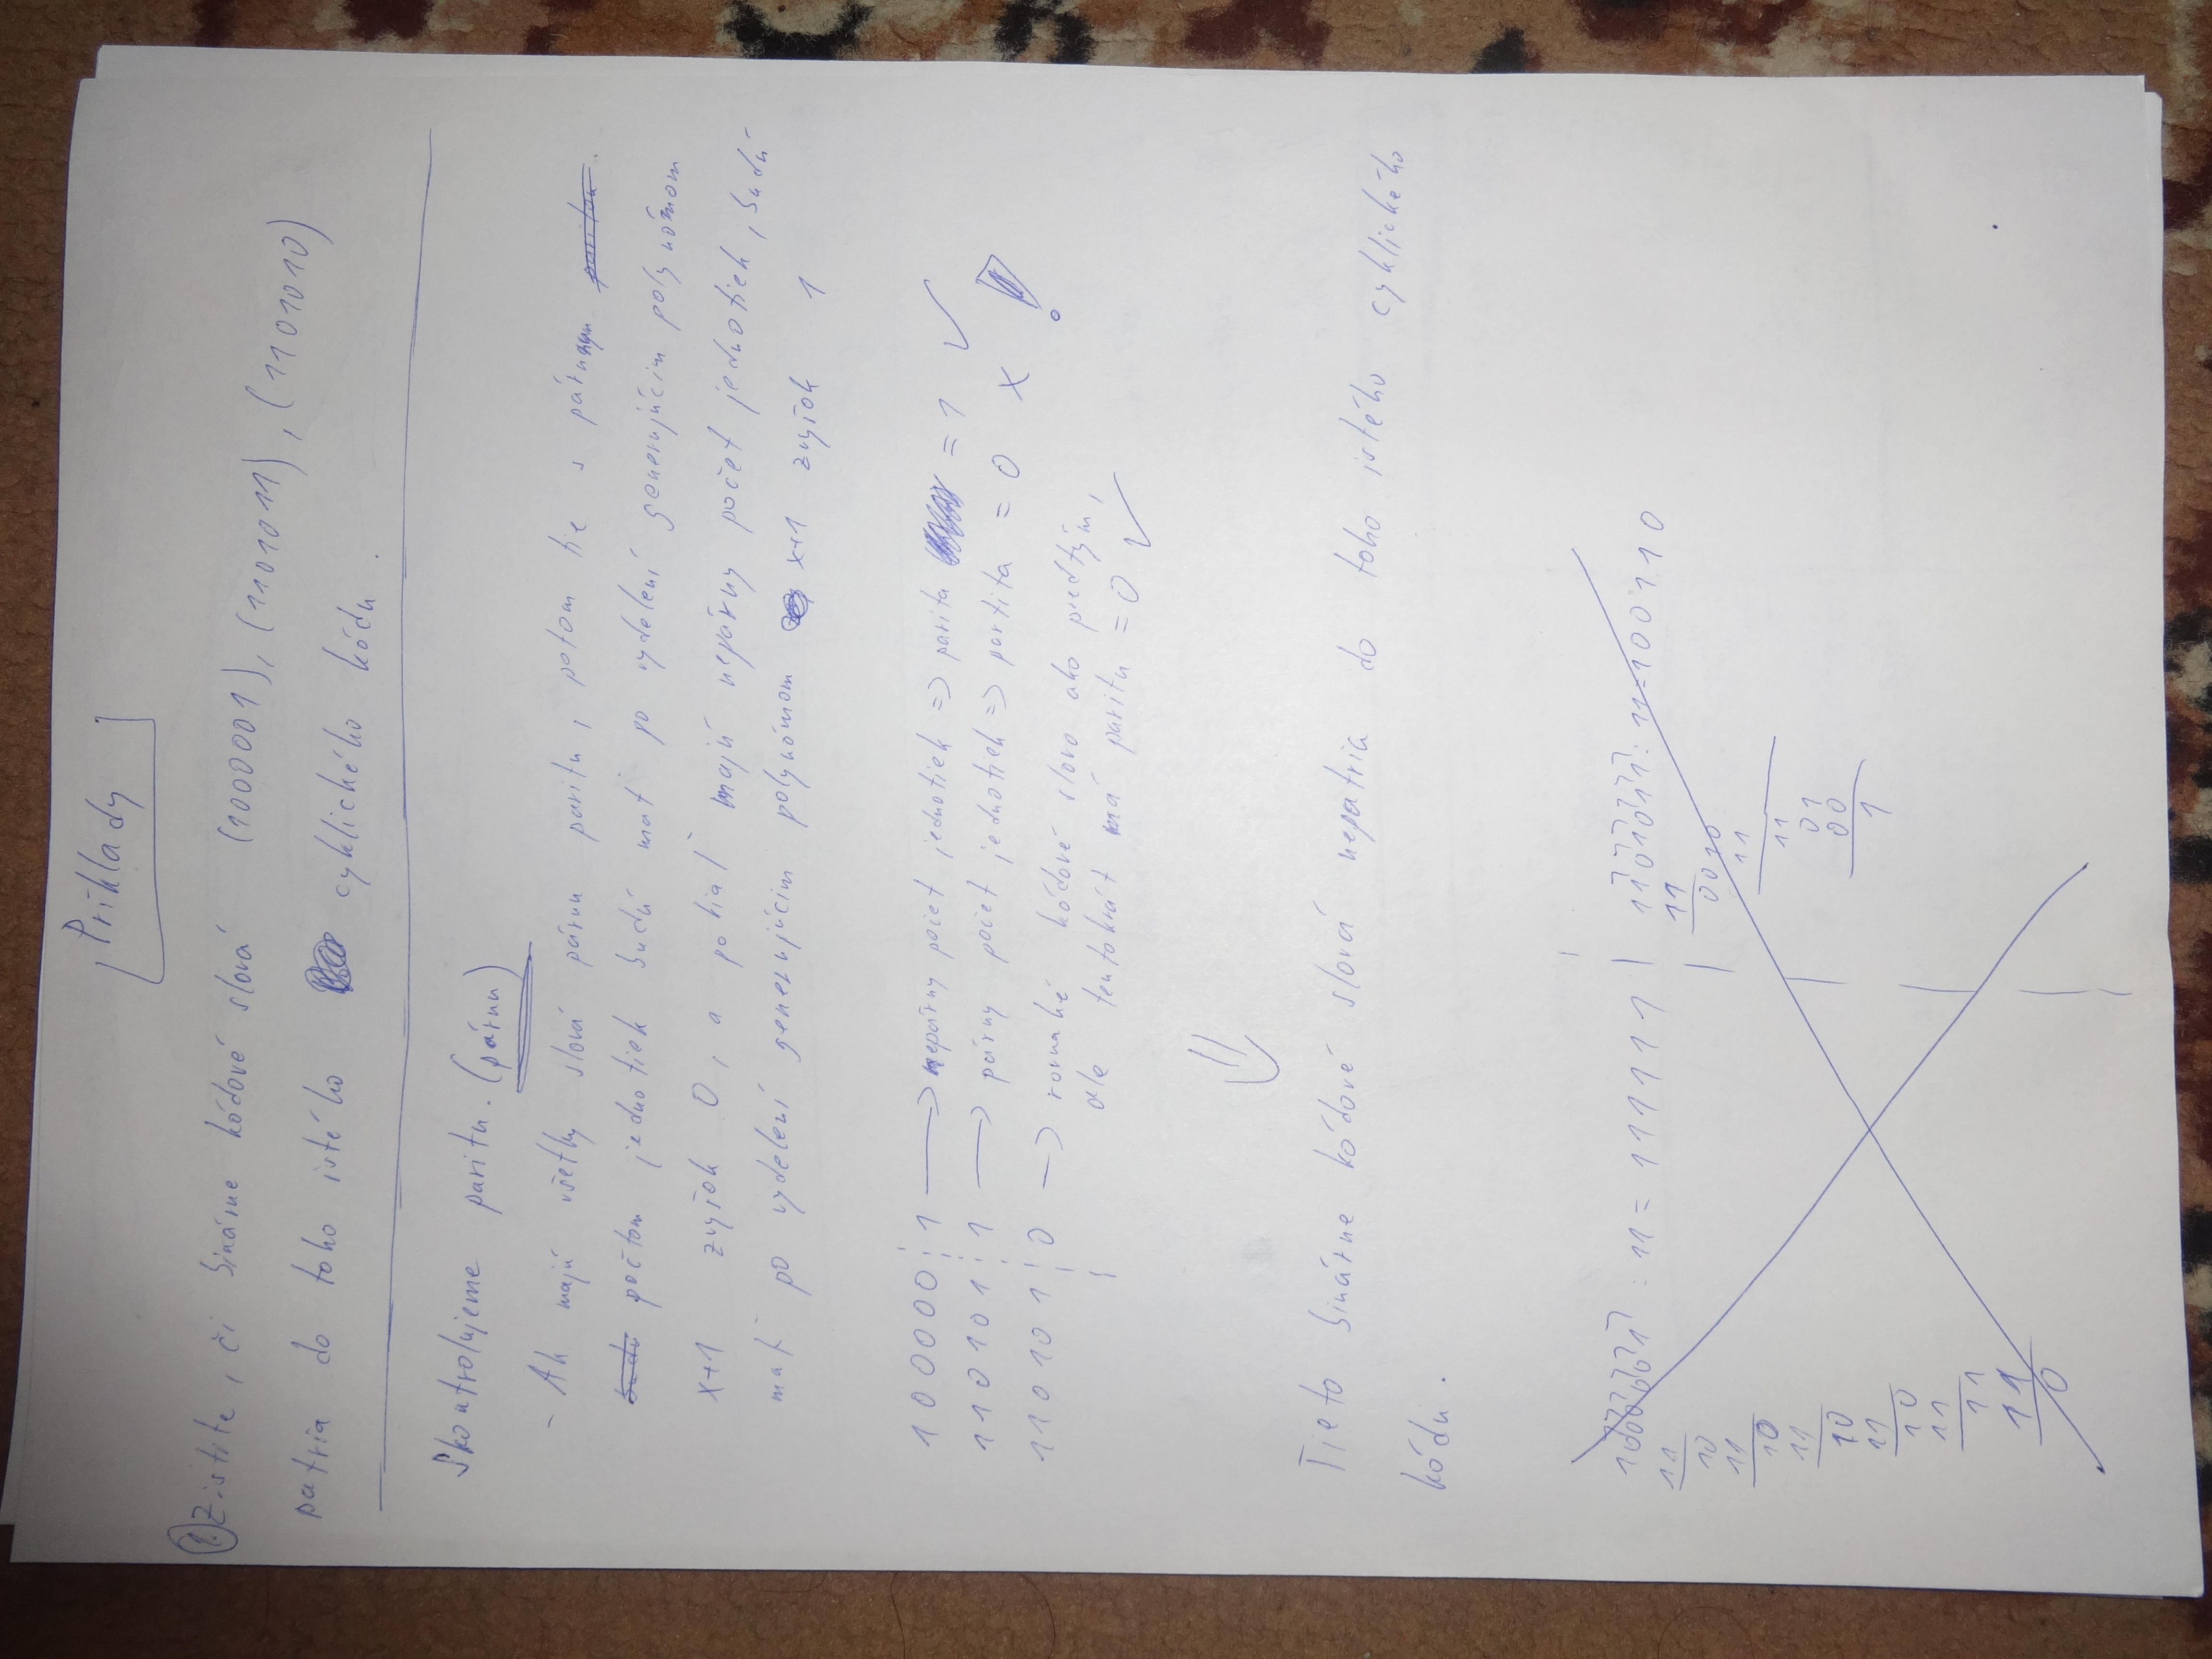 Príklady
1. Zistite, či binárne kódové slová (1000001), (1101011), (1101010)
patria do toho istého cyklického kódu.
Skontrolujeme paritu. (párnu)
- Ak majú všetky slová párnu paritu, potom tie s párnym paritou.
budú počtom jednotiek budú mať po vydelení generujúcim polynómom
x+1 zvyšok 0, a pokiaľ majú nepárny počet jednotiek, budú
mať po vydelení generujúcim polynómom x+1 zvyšok 1
100000 1 → nepárny počet jednotiek => parita = 1 ✓
110101 1 → párny počet jednotiek => partita = 0 x !
110101 0 → rovnaké kódové slovo ako predtým,
ale tentokrát má paritu = 0 ✓
⇓
Tieto binárne kódové slová nepatria do toho istého cyklického
kódu.
1000001 : 11 = 111111 | 1101011 : 11 = 100110
11
10
11
10
11
10
11
10
11
11
11
0
11
0010
11
11
01
00
1